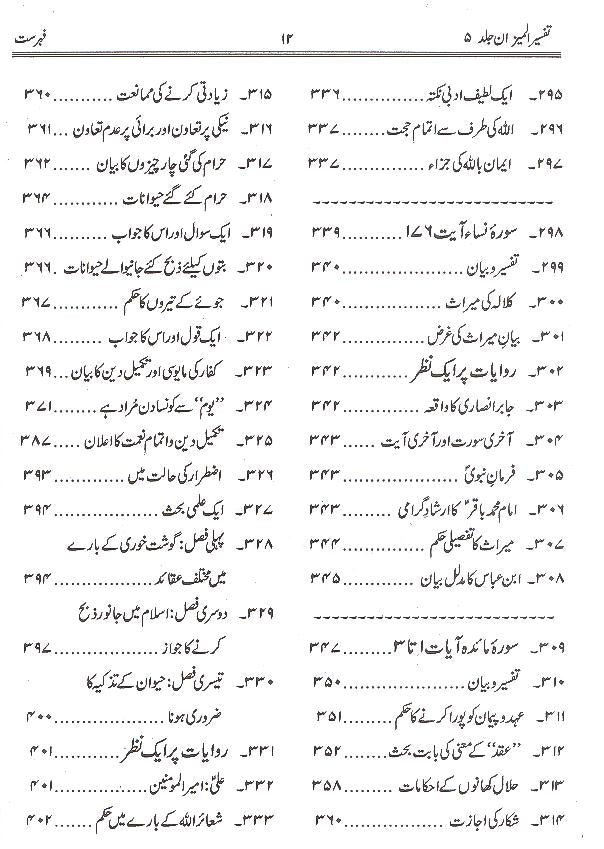 تفسیر المیزان جلد ۵
۱۲
فہرست
۲۹۵۔ ایک لطیف ادبی نکتہ ............... ۳۳۶
۲۹۶۔ اللہ کی طرف سے اتمام حجت ........ ۳۳۷
۲۹۷۔ ایمان باللہ کی جزاء ............... ۳۳۷
۲۹۸۔ سورۂ نساء آیت ۱۷۶ ........... ۳۳۹
۲۹۹۔ تفسیر و بیان ..................... ۳۴۰
۳۰۰۔ کلالہ کی میراث .................. ۳۴۰
۳۰۱۔ بیانِ میراث کی غرض ............. ۳۴۲
۳۰۲۔ روایات پر ایک نظر ............. ۳۴۲
۳۰۳۔ جابر انصاری کا واقعہ ............. ۳۴۲
۳۰۴۔ آخری سورت اور آخری آیت ...... ۳۴۳
۳۰۵۔ فرمانِ نبویؐ ..................... ۳۴۳
۳۰۶۔ امام محمد باقرؑ کا ارشادِ گرامی ......... ۳۴۳
۳۰۷۔ میراث کا تفصیلی حکم ............... ۳۴۴
۳۰۸۔ ابن عباس کا مدلل بیان ........... ۳۴۵
۳۰۹۔ سورۂ مائدہ آیات ۱ تا ۳ ......... ۳۴۷
۳۱۰۔ تفسیر و بیان ..................... ۳۵۰
۳۱۱۔ عہد و پیمان کو پورا کرنے کا حکم ........ ۳۵۱
۳۱۲۔ ”عقد“ کے معنی کی بابت بحث ...... ۳۵۲
۳۱۳۔ حلال کھانوں کے احکامات ......... ۳۵۸
۳۱۴۔ شکار کی اجازت .................. ۳۶۰
۳۱۵۔ زیادتی کرنے کی ممانعت ........... ۳۶۰
۳۱۶۔ نیکی پر تعاون اور برائی پر عدم تعاون ... ۳۶۱
۳۱۷۔ حرام کی گئی چار چیزوں کا بیان ........ ۳۶۲
۳۱۸۔ حرام کئے گئے حیوانات ............ ۳۶۴
۳۱۹۔ ایک سوال اور اس کا جواب ........ ۳۶۶
۳۲۰۔ بتوں کیلئے ذبح کئے جانیوالے حیوانات . ۳۶۶
۳۲۱۔ جوئے کے تیروں کا حکم ............ ۳۶۷
۳۲۲۔ ایک قول اور اس کا جواب ......... ۳۶۸
۳۲۳۔ کفار کی مایوسی اور تکمیل دین کا بیان ... ۳۶۹
۳۲۴۔ ”یوم“ سے کونسا دن مُراد ہے ........ ۳۷۱
۳۲۵۔ تکمیل دین و اتمامِ نعمت کا اعلان ..... ۳۸۷
۳۲۶۔ اضطرار کی حالت میں ............. ۳۹۳
۳۲۷۔ ایک علمی بحث ................... ۳۹۴
۳۲۸۔ پہلی فصل: گوشت خوری کے بارے
میں مختلف عقائد ................. ۳۹۴
۳۲۹۔ دوسری فصل: اسلام میں جانور ذبح
کرنے کا جواز .................... ۳۹۷
۳۳۰۔ تیسری فصل: حیوان کے تذکیہ کا
ضروری ہونا ..................... ۴۰۰
۳۳۱۔ روایات پر ایک نظر ............. ۴۰۱
۳۳۲۔ علیؑ: امیر المومنین ................ ۴۰۱
۳۳۳۔ شعائر اللہ کے بارے میں حکم ....... ۴۰۲